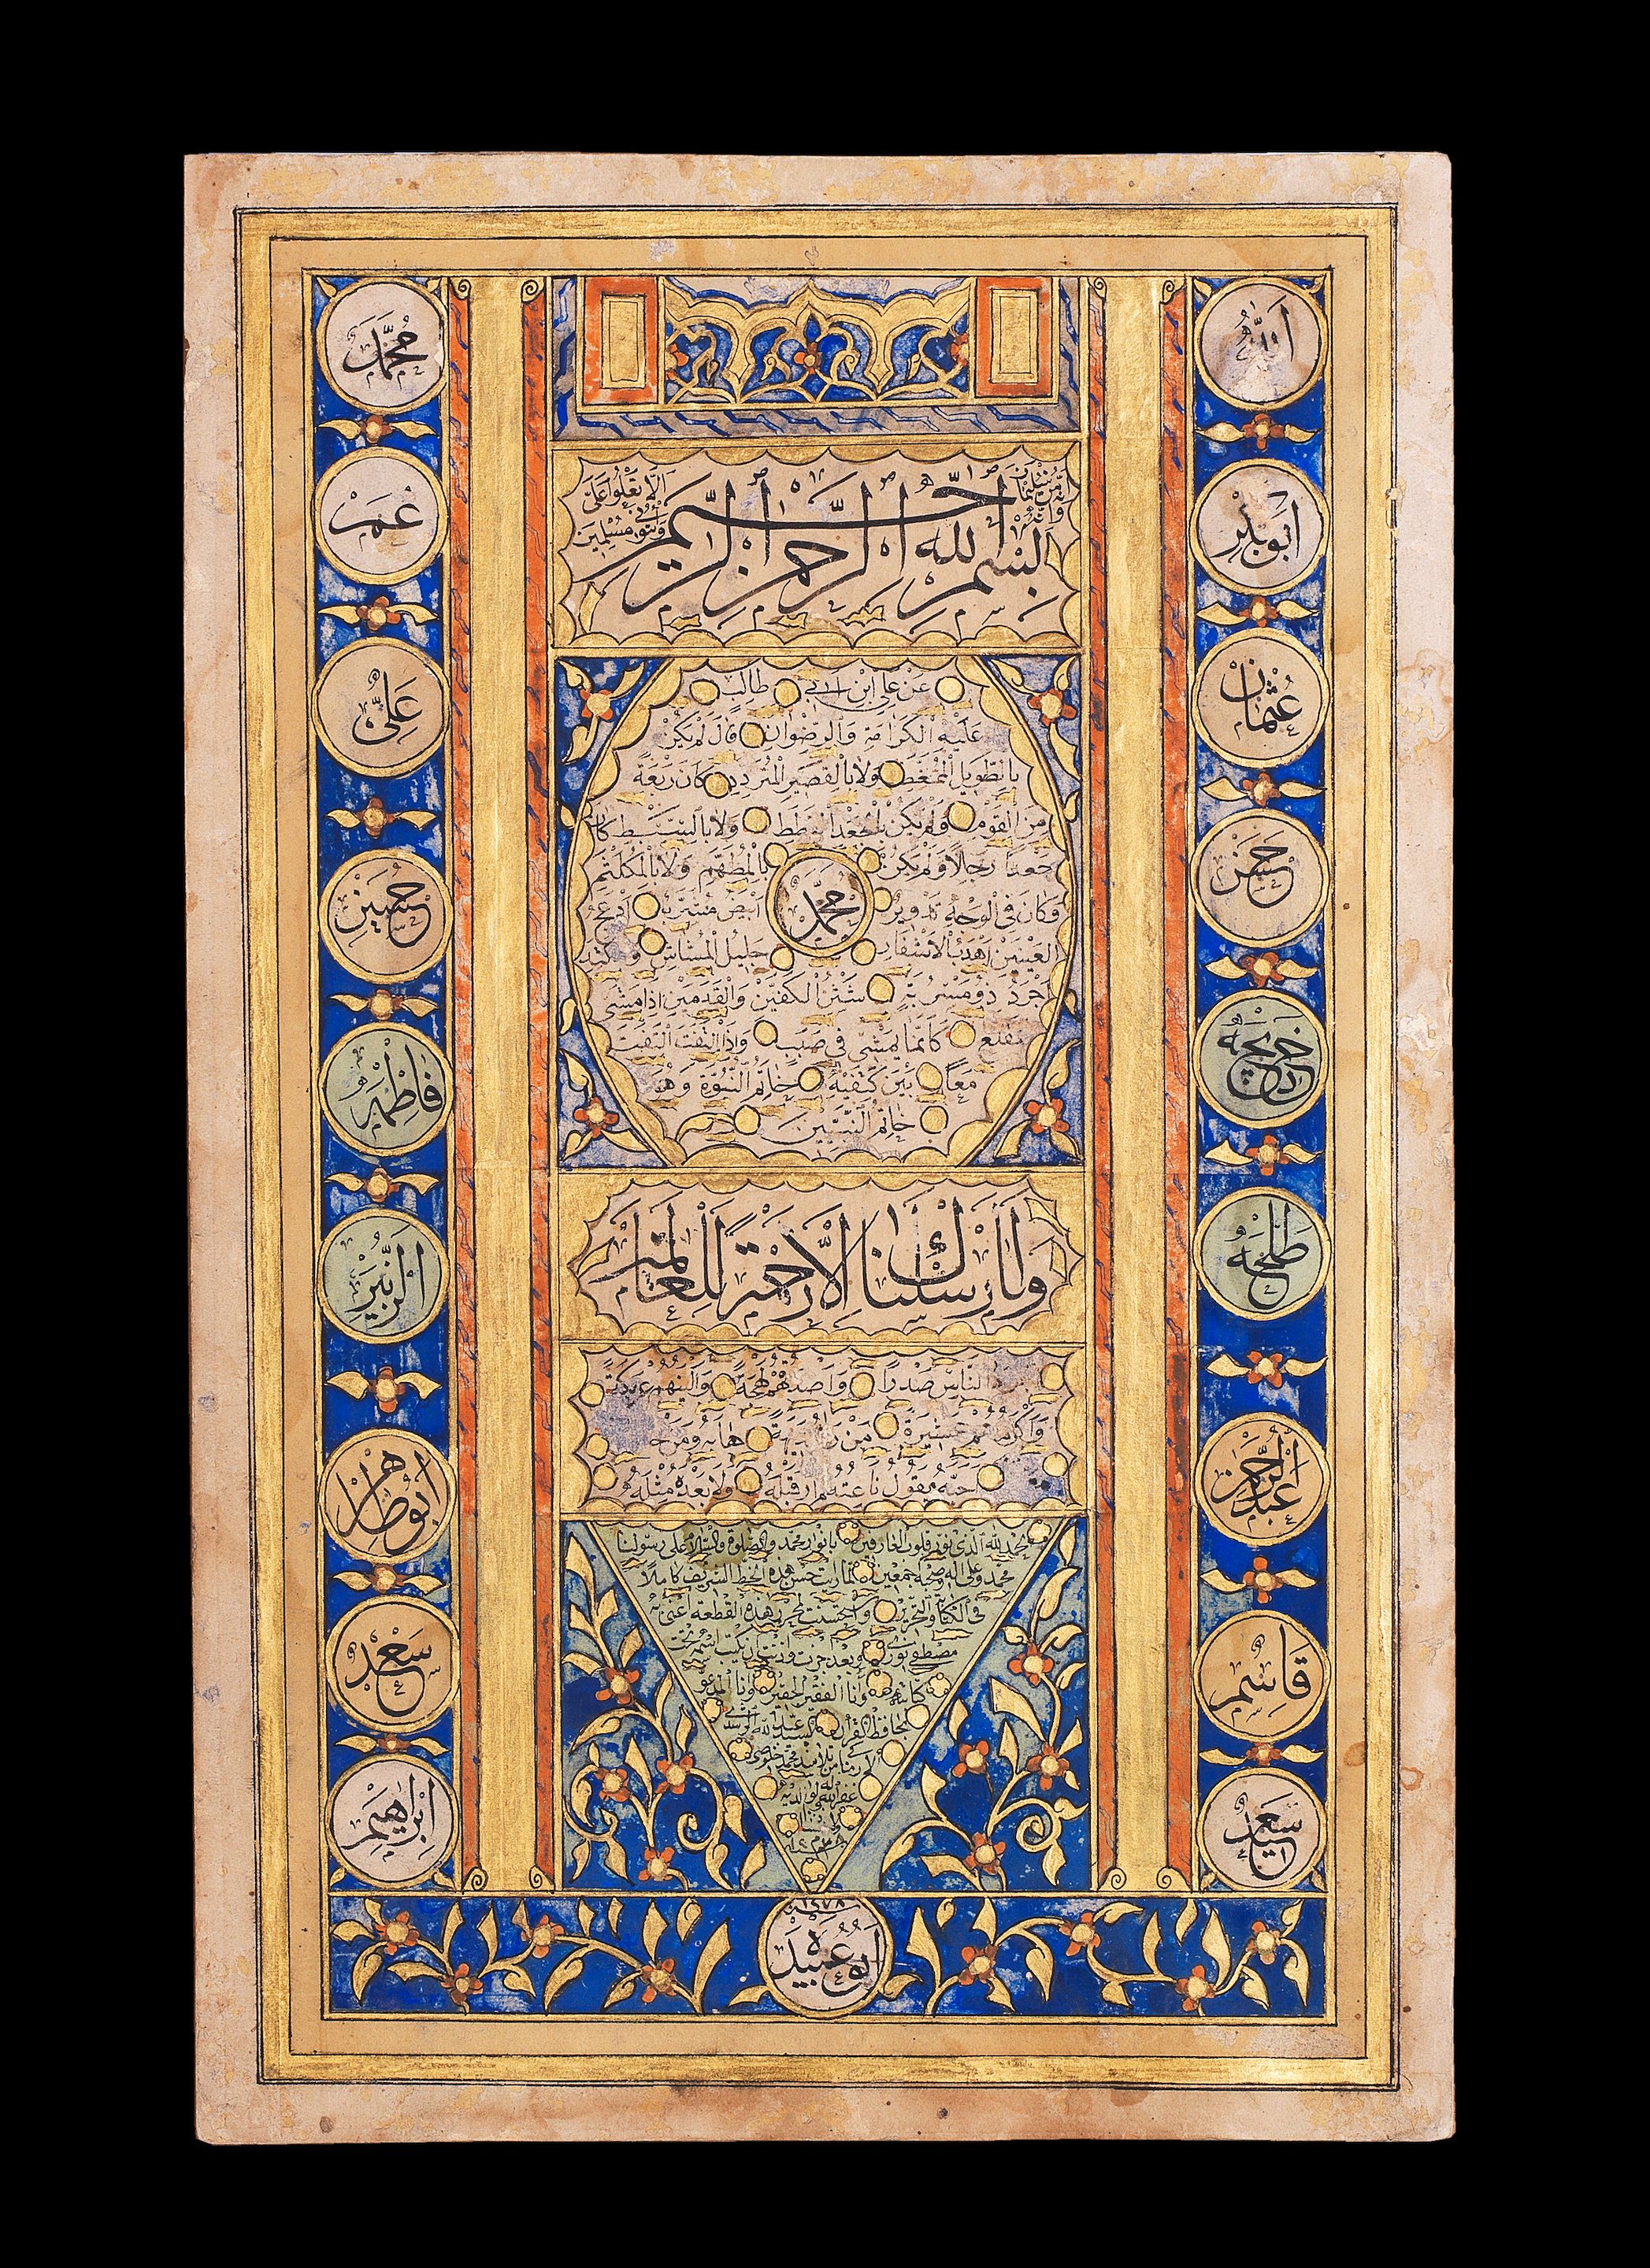 الله
محمد
ابو بكر
عمر
عثمان
علي
حسن
حسين
خديجه
فاطمه
طلحه
الزبير
عبد الرحمن
ابو طاهر
قاسم
سعد
سعيد
ابراهيم
انه من سليمان وانه
بسم الله الرحمن الرحيم
الا تعلوا علي وأتوني مسلمين
عن علي ابن ابي طالب
عليه الكرامة والرضوان قال لم يكن
بالطويل الممغط ولا بالقصير المتردد كان ربعة
من القوم ولم يكن بالجعد القطط ولا بالسبط كان
جعدا رجلا ولم يكن بالمطهم ولا بالمكلثم
وكان في الوجه تدوير ابيض مشرب ادعج
العينين اهدب الاشفار جليل المشاش والكتد
محمد
اجرد ذو مسربة شثن الكفين والقدمين اذا مشى
تقلع كانما يمشي في صبب واذا التفت التفت
معا بين كتفيه خاتم النبوة وهو
خاتم النبيين
وما أرسلناك الا رحمة للعالمين
الناس صدرا واصدقهم لهجة والينهم عريكة
واكرمهم عشيرة من رآه بديهة هابه ومن
احبه يقول ناعته لم ار قبله ولا بعده مثله
الحمد لله الذي نور قلوب العارفين بانوار محمد والصلوة والسلام على رسولنا
محمد وعلى اله وصحبه اجمعين رايت حسن هذه الخط الشريف كاملا
في الكتابة والتحرير هذه القطعة اعني به
مصطفى نوري
كتابته وانا الفقير الحقير وانا المدعو
بحافظ القرآن السيد عبد الله
من تلاميذ محمد خلوصي
غفر الله له ولوالديه
١٢٧٨
ابو عبيده